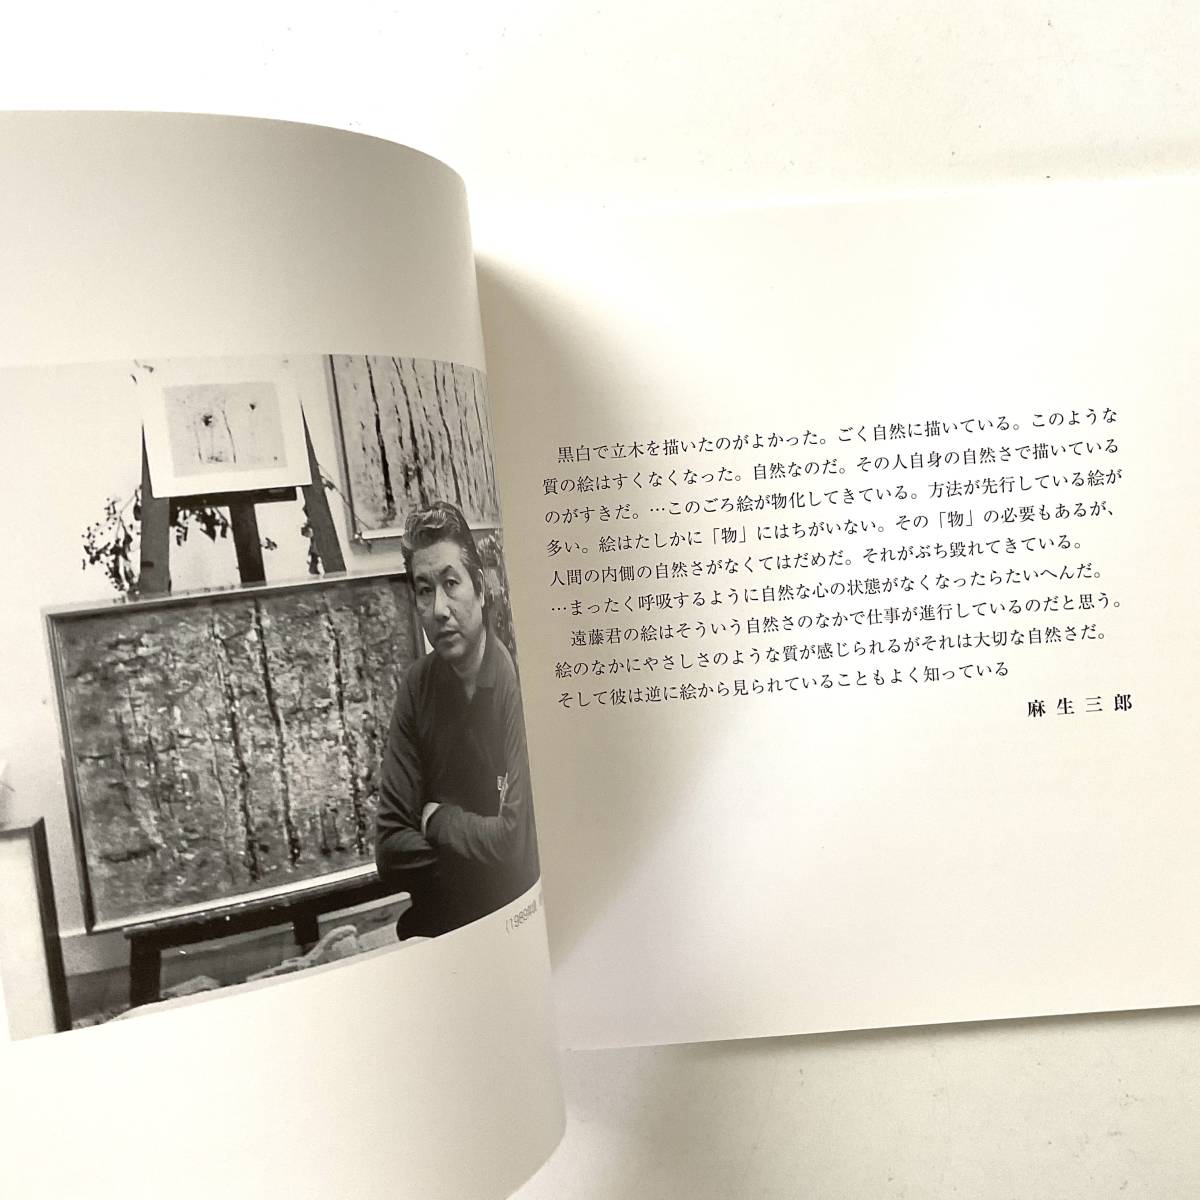 黒白で立木を描いたのがよかった。ごく自然に描いている。このような
質の絵はすくなくなった。自然なのだ。その人自身の自然さで描いている
のがすきだ。…このごろ絵が物化してきている。方法が先行している絵が
多い。絵はたしかに「物」にはちがいない。その「物」の必要もあるが、
人間の内側の自然さがなくてはだめだ。それがぶち毀れてきている。
…まったく呼吸するように自然な心の状態がなくなったらたいへんだ。
遠藤君の絵はそういう自然さのなかで仕事が進行しているのだと思う。
絵のなかにやさしさのような質が感じられるがそれは大切な自然さだ。
そして彼は逆に絵から見られていることもよく知っている
麻生三郎
(1989年頃、